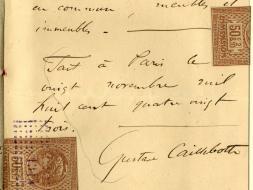 en commun, meubles et
immeubles. —
Fait à Paris le
vingt novembre mil
huit cent quatre vingt
trois.
Gustave Caillebotte
50c